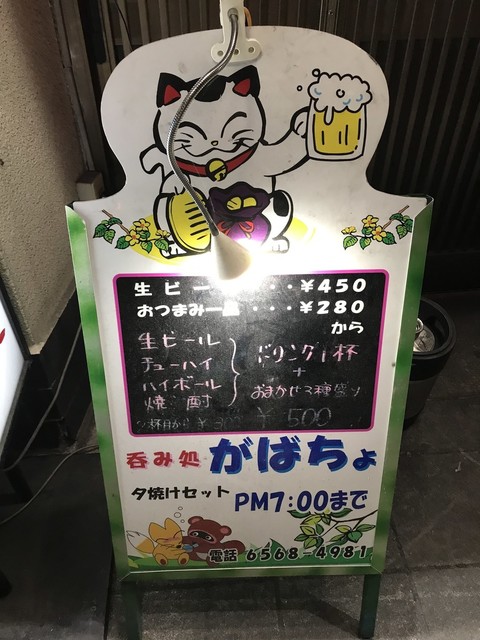 生ビール・・・¥450
おつまみ一品・・・¥280
から
生ビール
チューハイ
ハイボール
焼酎
ドリンク1杯
+
おまかせ3種盛り
2杯目から ¥
¥500
呑み処 がばちょ
夕焼けセット PM7:00まで
電話 6568-4981